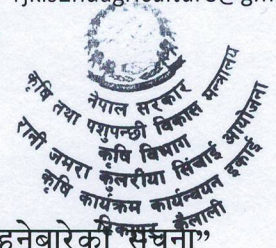 नेपाल सरकार
कृषि तथा पशुपन्छी विकास मन्त्रालय
कृषि विभाग
रानी जमरा कुलरीया सिंचाई आयोजना
कृषि कार्यक्रम कार्यन्वयन इकाई
टिकापुर, कैलाली
हुनेबारेको सूचना”